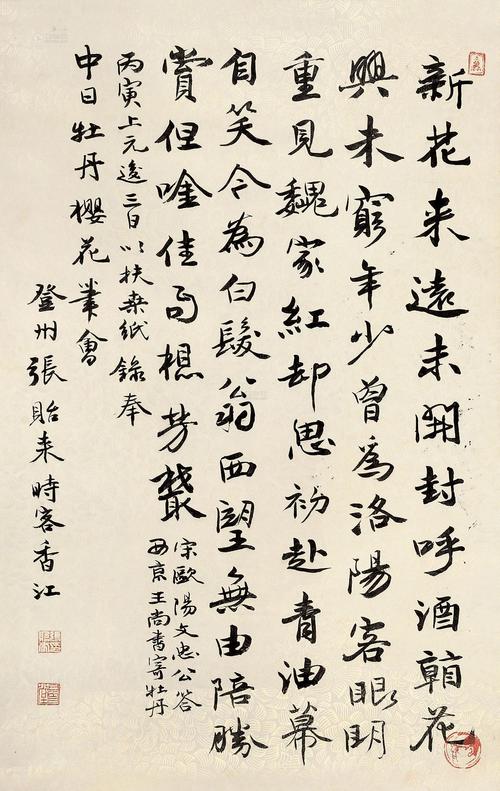 新花来遠未開封呼酒頼花
興未窮年少曾爲洛陽客眼明
重見魏家紅却思初赴青油幕
自笑今為白髮翁西望無由陪勝
賞但唫佳句想芳叢
宋歐陽文忠公答
西京王尚書寄牡丹
丙寅上元後三日以扶桑紙錄奉
中日牡丹櫻花筆會
登州張貽来時客香江